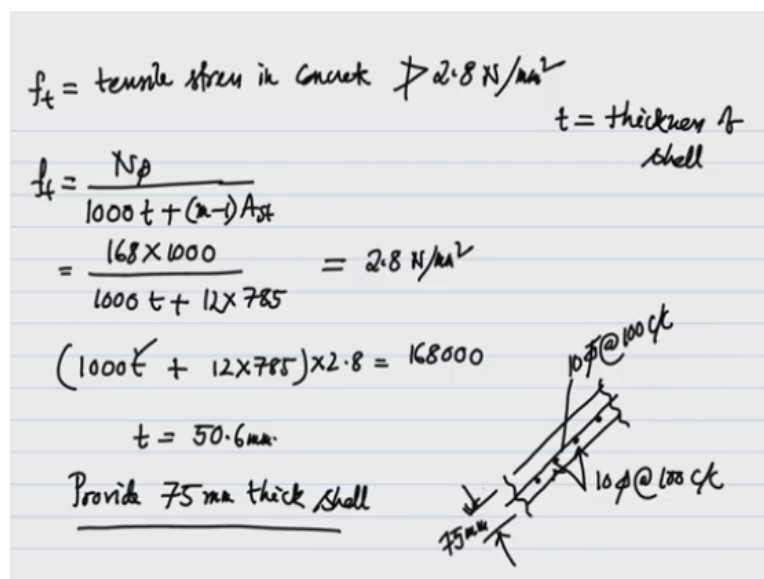 f_t = tensile stress in concrete ≯ 2.8 N/mm²
t = thickness of
shell
f_t = Nφ / (1000 t + (m-1) A_st)
= 168 × 1000 / (1000 t + 12 × 785) = 2.8 N/mm²
(1000t + 12×785) × 2.8 = 168000
10φ@100 c/c
t = 50.6 mm.
Provide 75 mm thick shell
10φ@100 c/c
75mm